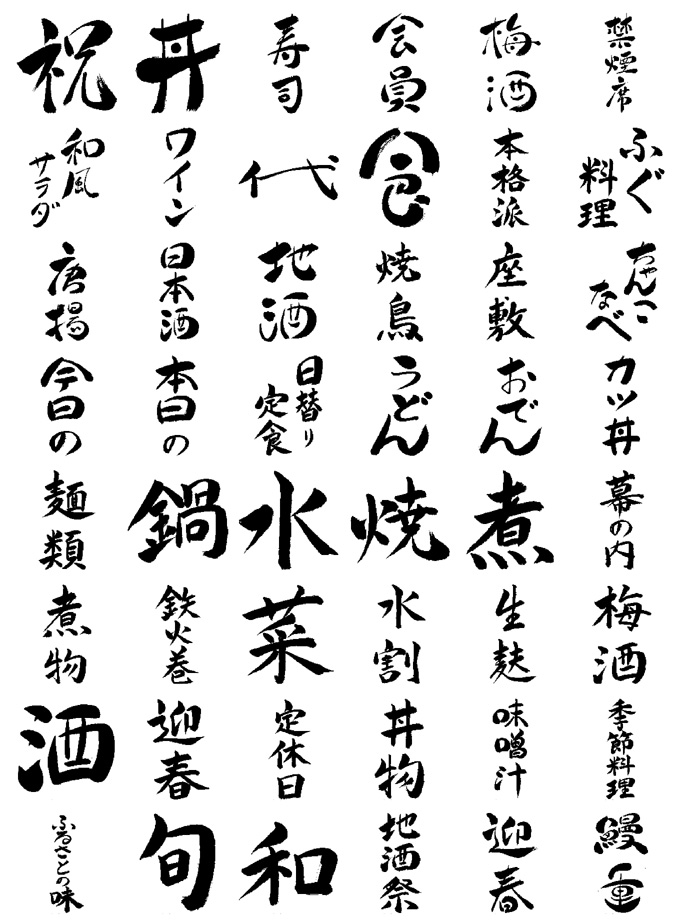 祝
丼
寿司
会員
梅酒
禁煙席
和風
サラダ
ワイン
代
食
本格派
ふぐ
料理
唐揚
日本酒
地酒
焼鳥
座敷
ちゃんこ
なべ
今日の
本日の
日替り
定食
うどん
おでん
カツ丼
麺類
鍋
水
焼
煮
幕の内
煮物
鉄火巻
菜
水割
生麸
梅酒
酒
迎春
定休日
丼物
味噌汁
季節料理
ふるさとの味
旬
和
地酒祭
迎春
鰻重